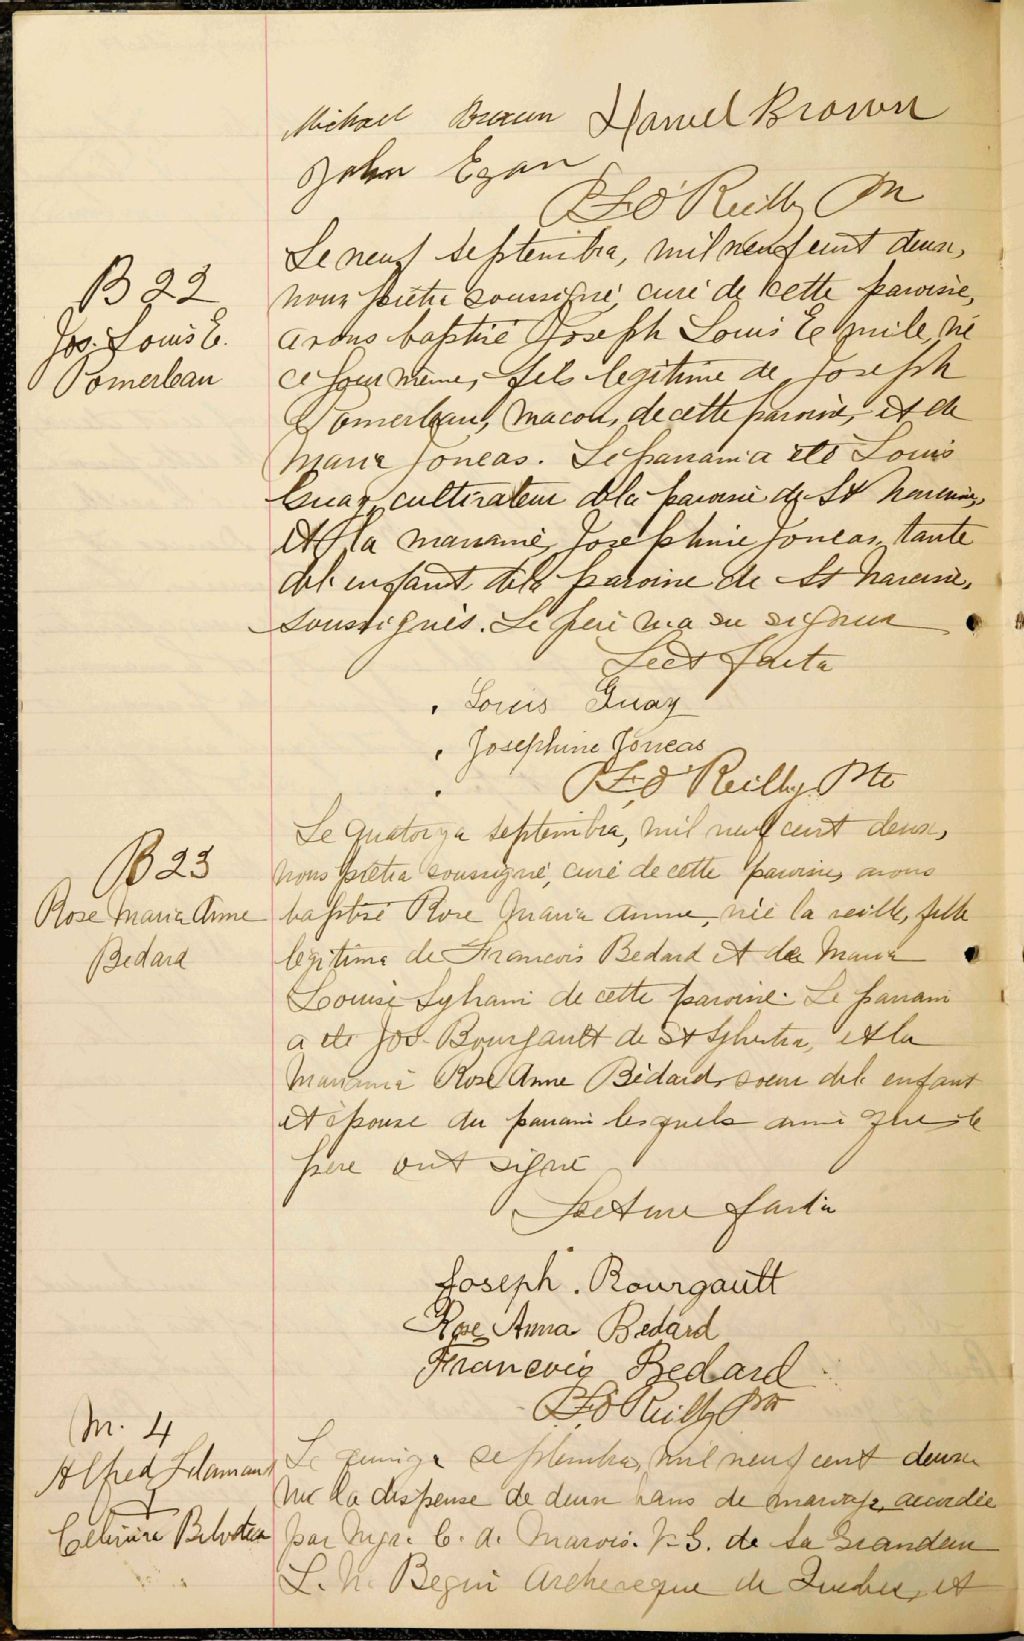 Michael Brown Daniel Brown
John Egan
P.F.O'Reilly Ptre
B 22
Jos. Louis E.
Pomerleau
Le neuf septembre, mil neuf cent deux,
nous prêtre soussigné, curé de cette paroisse,
avons baptisé Joseph Louis Emile, né
ce jour même, fils legitime de Joseph
Pomerleau, macon, de cette paroisse, et de
Maria Joneas. Le parrain a été Louis
Guay, cultivateur de la paroisse de St Narcisse,
et la marraine, Josephine Joneas, tante
de l'enfant, de la paroisse de St Narcisse,
soussignés. Le père n'a su signer
Lect faite
Louis Guay
Josephine Joneas
P.F.O'Reilly Ptre
B 23
Rose Maria Anne
Bedard
Le quatorze septembre, mil neuf cent deux,
nous prêtre soussigné, curé de cette paroisse, avons
baptisé Rose Maria Anne, née la veille, fille
legitime de Francois Bedard et de Maria
Louise Sylvain de cette paroisse. Le parrain
a été Jos. Bourgault de St Sylvestre, et la
marraine Rose Anne Bédard, soeur de l'enfant
et épouse du parrain lesquels ainsi que le
père ont signé
Lecture faite
Joseph. Bourgault
Rose Anna Bedard
Francois Bedard
P.F.O'Reilly Ptr
M. 4
Alfred
+
Le quinze septembre, mil neuf cent deux
vu la dispense de deux bans de mariage, accordée
par Mgr. C. A. Marois. V.G. de Sa Grandeur
L. N. Begin Archeveque de Quebec, et